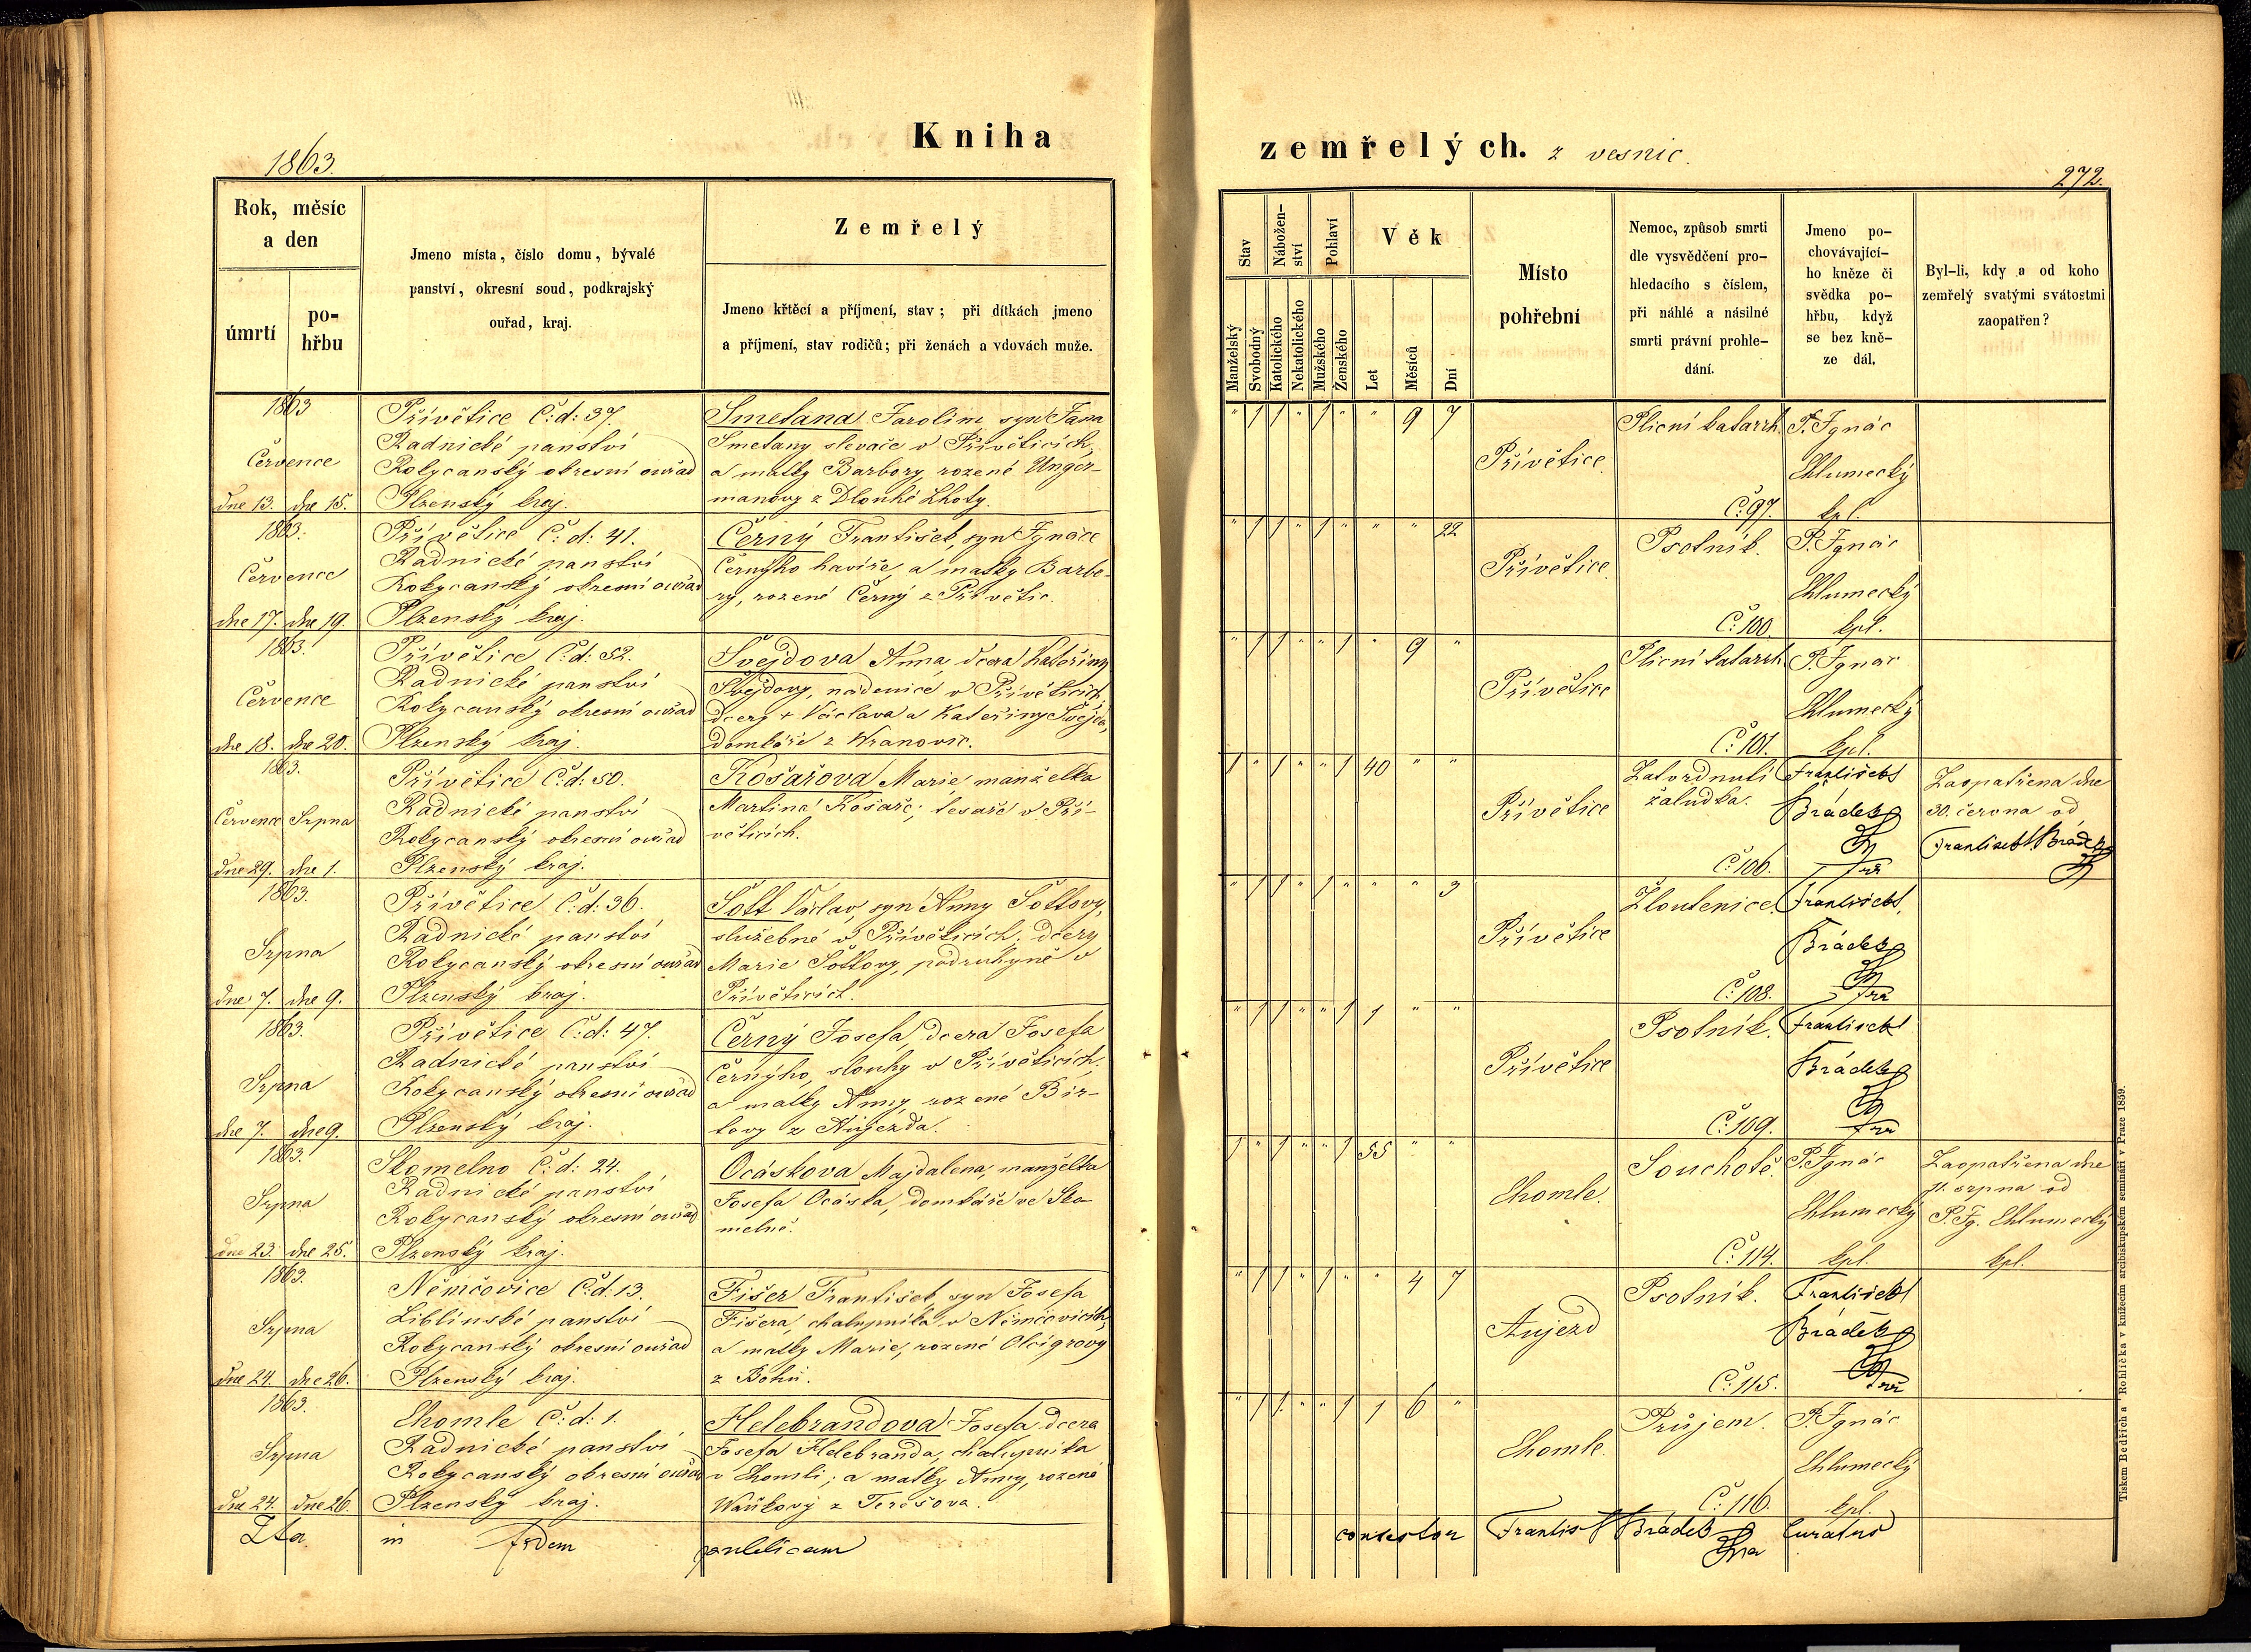 Kniha
1863.
Rok, měsíc
a den
úmrtí
po-
hřbu
Jmeno místa, číslo domu, bývalé
panství, okresní soud, podkrajský
ouřad, kraj.
Zemřelý
Jmeno křtěcí a příjmení, stav; při dítkách jmeno
a příjmení, stav rodičů; při ženách a vdovách muže.
1863
Července
dne 13. dne 15.
Přívětice Č:d: 37.
Radnické panství
Rokycanský okresní ouřad
Plzenský kraj.
Smetana Jarolim, syn Jana
Smetany slevače v Přívěticích,
a matky Barbory, rozené Unger-
manovy z Dlouhé Lhoty.
1863.
Července
dne 17. dne 19.
Přívětice Č: d: 41.
Radnické panství
Rokycanský okresní ouřad
Plzenský kraj.
Černý František, syn Ignáce
Černýho havíře, a matky Barbo-
ry, rozené Černý z Přívětic.
1863.
Července
dne 18. dne 20.
Přívětice Č:d: 52.
Radnické panství
Rokycanský okresní ouřad
Plzenský kraj.
Švejdova Anna, dcera Kateřiny
Švejdovy, nádenice v Přívěticích,
dcery + Václava a Kateřiny Švejda,
domkáře z Wranovic.
1863.
Července Srpna
dne 29. dne 1.
Přívětice Č:d: 50.
Radnické panství
Rokycanský okresní ouřad
Plzenský kraj.
Košařova Marie, manželka
Martina Košaře, tesaře v Pří-
věticích.
1863.
Srpna
dne 7. dne 9.
Přívětice Č:d: 36.
Radnické panství
Rokycanský okresní ouřad
Plzenský kraj.
Šott Václav, syn Anny Šottovy,
služebné v Přívěticích, dcery
Marie Šottovy, podruhyně v
Přívěticích.
1863.
Srpna
dne 7. dne 9.
Přívětice Č:d: 47.
Radnické panství
Rokycanský okresní ouřad
Plzenský kraj.
Černý Josefa, dcera Josefa
Černýho, slouhy v Přívěticích,
a matky Anny, rozené Bir-
tovy z Aujezda.
1863.
Srpna
dne 23. dne 25.
Skomelno Č:d: 24.
Radnické panství
Rokycanský okresní ouřad
Plzenský kraj.
Ocáskova Majdalena, manželka
Josefa Ocáska, domkáře ve Sko-
melně.
1863.
Srpna
dne 24. dne 26.
Němčovice Č:d: 13.
Liblínské panství
Rokycanský okresní ouřad
Plzenský kraj.
Fišer František, syn Josefa
Fišera, chalupníka v Němčovicích,
a matky Marie, rozené
z Bohů.
1863.
Srpna
dne 24. dne 26.
Chomle Č:d: 1.
Radnické panství
Rokycanský okresní ouřad
Plzenský kraj.
Helebrandova Josefa dcera
Josefa Helebranda, chalupníka
v Chomli; a matky Anny, rozené
Waňkovy z Terešova.
Ita in fidem publicam
zemřelých. z vesnic.
272.
Stav
Nábožen-
ství
Pohlaví
Věk
Manželský
Svobodný
Katolického
Nekatolického
Mužského
Ženského
Let
Měsíců
Dní
Místo
pohřební
Nemoc, způsob smrti
dle vysvědčení pro-
hledacího s číslem,
při náhlé a násilné
smrti právní prohle-
dání.
Jmeno po-
chovávající-
ho kněze či
svědka po-
hřbu, když
se bez kně-
ze dál.
Byl-li, kdy a od koho
zemřelý svatými svátostmi
zaopatřen?
" 1 1 " 1 " " 9 7
Přívětice.
Plicní katarrh.
Č: 97.
P. Ignác
Chlumecký
kpl.
" 1 1 " 1 " " " 22
Přívětice.
Psotník.
Č: 100.
P. Ignác
Chlumecký
kpl.
" 1 1 " " 1 " 9 "
Přívětice
Plicní katarrh.
Č: 101.
P. Ignác
Chlumecký
kpl.
1 " 1 " " 1 40 " "
Přívětice
Zatvrdnutí
žaludka.
Č: 106.
František
Brádek
Zaopatřena dne
30. června od
František Brádek
" 1 1 " 1 " " " 3
Přívětice
Žloutenice.
Č: 108.
František
Brádek
" 1 1 " " 1 1 " "
Přívětice
Psotník.
Č: 109.
František
Brádek
1 " 1 " " 1 55 " "
Chomle.
Souchotě.
Č: 114.
P. Ignác
Chlumecký
kpl.
Zaopatřena dne
11. srpna od
P. Ig. Chlumecký
kpl.
" 1 1 " 1 " " 4 7
Aujezd
Psotník.
Č: 115.
František
Brádek
" 1 1 " " 1 1 6 "
Chomle.
Průjem.
Č: 116.
P. Ignác
Chlumecký
kpl.
consestor Frantis Brádek Curatus
Tiskem Bedřicha Rohlíčka v knížecím arcibiskupském semináři v Praze 1859.